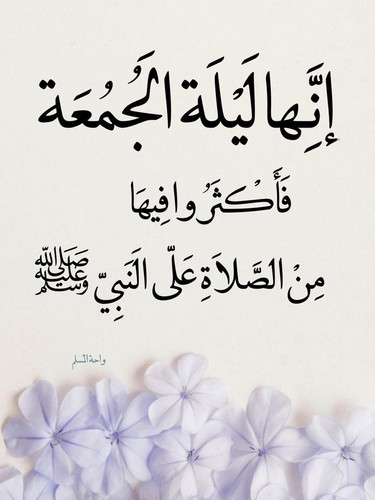 إِنَّها لَيْلَة الجُمُعَة
فَأَكْثَرُوا فِيهَا
مِنْ الصَّلَاةِ عَلَى النَبِيِّ ﷺ
واحة المسلم